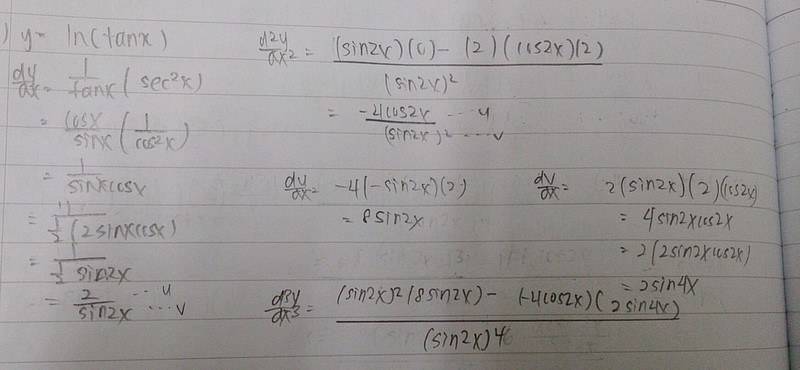 ) y = ln(tanx)
dy/dx = 1/tanx (sec²x)
= cosx/sinx (1/cos²x)
= 1/sinxcosx
= 1/½(2sinxcosx)
= 1/½ sin2x
= 2/sin2x ...u ...v
d2y/dx2 = (sin2x)(0) - (2)(cos2x)(2) / (sin2x)²
= -4cos2x / (sin2x)² ...u ...v
du/dx = -4(-sin2x)(2)
= 8sin2x
dv/dx = 2(sin2x)(2)(cos2x)
= 4sin2xcos2x
= 2(2sin2xcos2x)
= 2sin4x
d3y/dx3 = (sin2x)2(8sin2x) - (-4cos2x)(2sin4x) / (sin2x)4